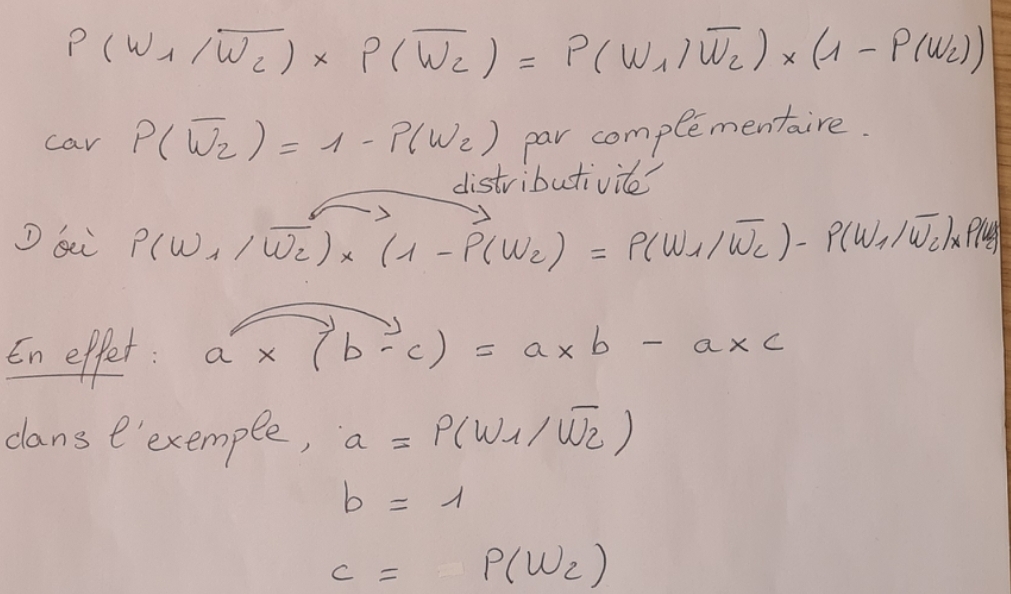 P(W₁/W̅₂) × P(W̅₂) = P(W₁/W̅₂) × (1 - P(W₂))
car P(W̅₂) = 1 - P(W₂) par complémentaire.
distributivité
D'où P(W₁/W̅₂) × (1 - P(W₂) = P(W₁/W̅₂) - P(W₁/W̅₂) × P(W₂)
En effet : a × (b - c) = a × b - a × c
dans l'exemple, a = P(W₁/W̅₂)
b = 1
c = P(W₂)